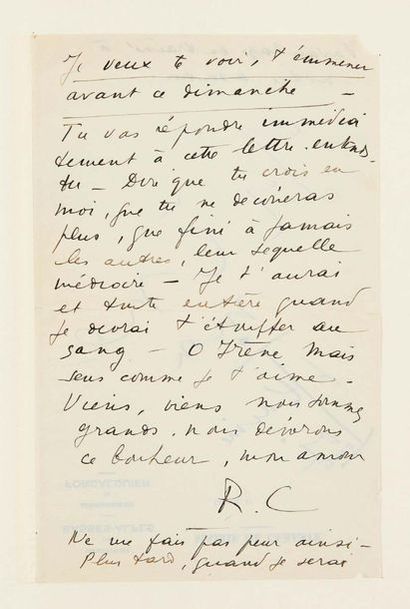 Je veux te voir, t'emmener
avant ce dimanche —
Tu vas répondre immédia
tement à cette lettre. entends
tu — Dire que tu crois en
moi, que tu ne
plus, que fini à jamais
les autres, leur sequelle
médiocre — Je t'aurai
et toute entière quand
je devrai t'étouffer au
sang — O Irène mais
sens comme je t'aime —
Viens, viens nous sommes
grands. nous devorons
ce bonheur, mon amour
R. C
Ne me fais pas peur ainsi —
Plus tard, quand je serai